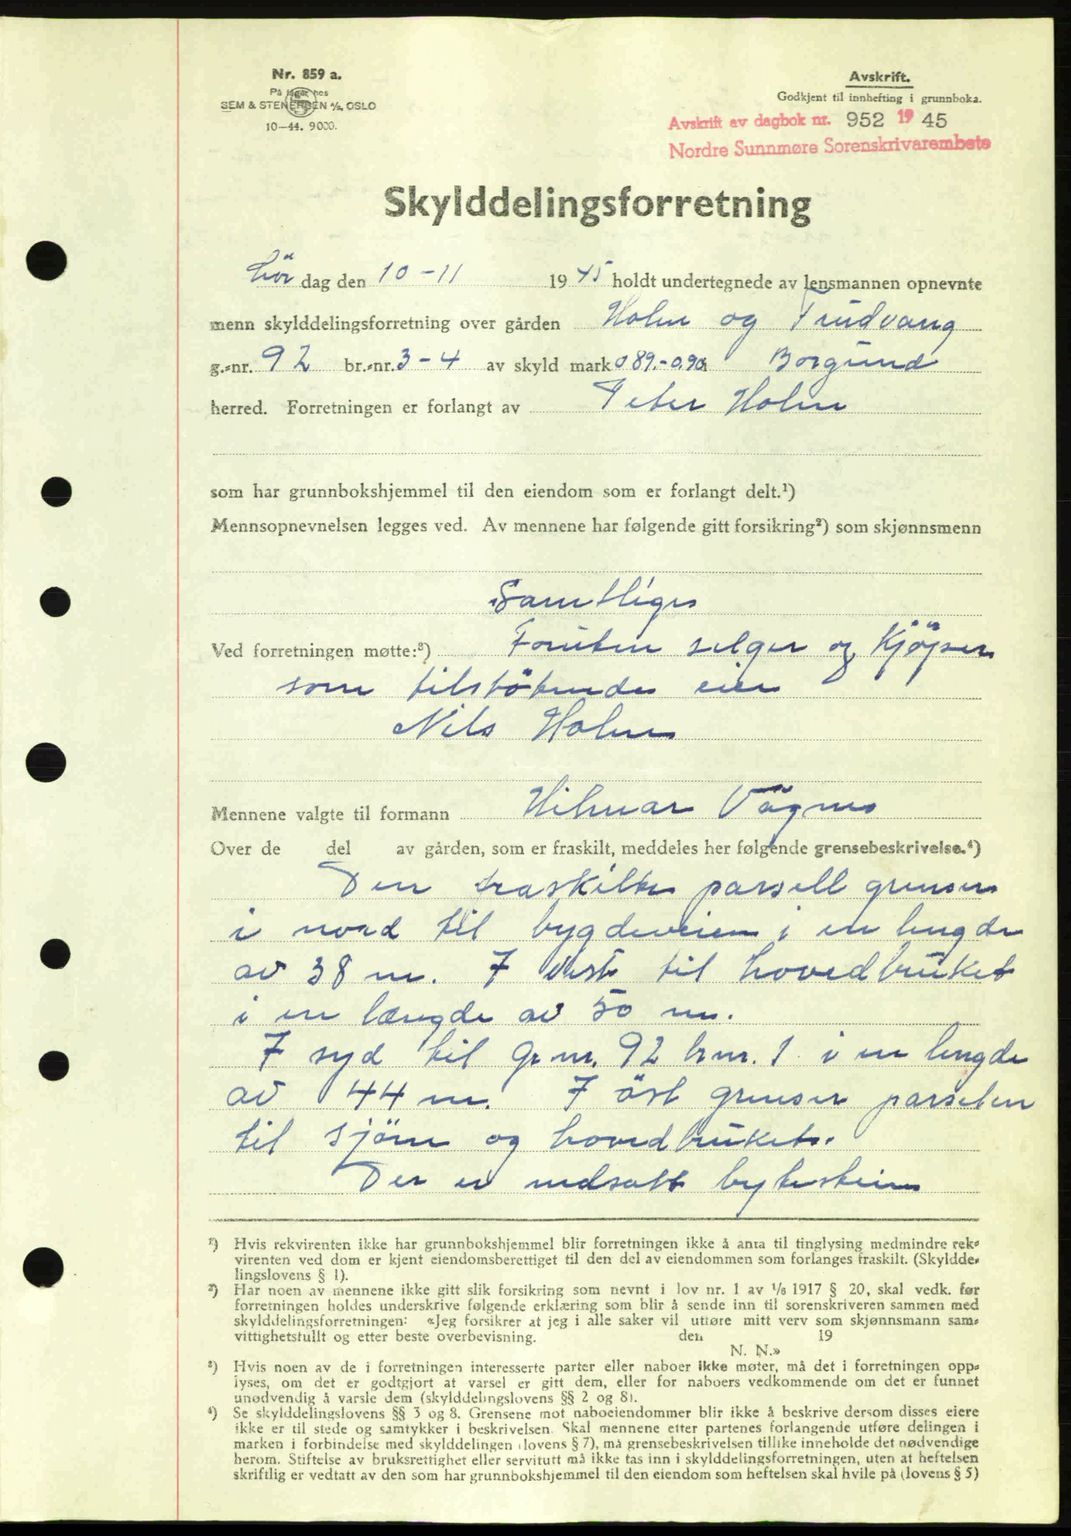 Nr. 859 a.
På lager hos
SEM & STENERSEN A/S, OSLO
10–44. 9000.
Avskrift.
Godkjent til innhefting i grunnboka.
Avskrift av dagbok nr. 952 19 45
Nordre Sunnmøre Sorenskrivarembete
Skylddelingsforretning
Lör dag den 10-11 19 45 holdt undertegnede av lensmannen opnevnte
menn skylddelingsforretning over gården Holm og Trudvang
g.-nr. 92 br.-nr. 3-4 av skyld mark 0.89.-0.90 i Borgund
herred. Forretningen er forlangt av Peter Holm
som har grunnbokshjemmel til den eiendom som er forlangt delt.¹)
Mennsopnevnelsen legges ved. Av mennene har følgende gitt forsikring²) som skjønnsmenn
Samtliges
Ved forretningen møtte:³) Foruten selger og Kjöper
som tilstötende eier
Nils Holm
Mennene valgte til formann Hilmar Vågnes
Over de del av gården, som er fraskilt, meddeles her følgende grensebeskrivelse.⁴)
Den fraskilte parsell grenser
i nord til bygdeveien i en lengde
av 38 m. I vest til hovedbruket
i en længde av 50 m.
I syd til Gr. nr. 92 br. nr. 1 i en lengde
av 44 m. I öst grenser parsellen
til sjöen og hovedbruket.
Der er nedsatt bytestein
¹) Hvis rekvirenten ikke har grunnbokshjemmel blir forretningen ikke å anta til tinglysing medmindre rek-
virenten ved dom er kjent eiendomsberettiget til den del av eiendommen som forlanges fraskilt. (Skyldde-
lingslovens § 1).
²) Har noen av mennene ikke gitt slik forsikring som nevnt i lov nr. 1 av 1/6 1917 § 20, skal vedk. før
forretningen holdes underskrive følgende erklæring som blir å sende inn til sorenskriveren sammen med
skylddelingsforretningen: «Jeg forsikrer at jeg i alle saker vil utføre mitt verv som skjønnsmann sam-
vittighetsfullt og etter beste overbevisning. den 19
N. N.»
³) Hvis noen av de i forretningen interesserte parter eller naboer ikke møter, må det i forretningen opp-
lyses, om det er godtgjort at varsel er gitt dem, eller for naboers vedkommende om det er funnet
unødvendig å varsle dem (skylddelingslovens §§ 2 og 8).
⁴) Se skylddelingslovens §§ 3 og 8. Grensene mot naboeiendommer blir ikke å beskrive dersom disses eiere
ikke er til stede og samtykker i beskrivelsen. Skal mennene etter partenes forlangende utføre delingen i
marken i forbindelse med skylddelingen (lovens § 7), må grensebeskrivelsen tillike inneholde det nødvendige
herom. Stiftelse av bruksrettighet eller servitutt må ikke tas inn i skylddelingsforretningen, uten at heftelsen
skriftlig er vedtatt av den som har grunnbokshjemmel til den eiendom som heftelsen skal hvile på (lovens § 5)